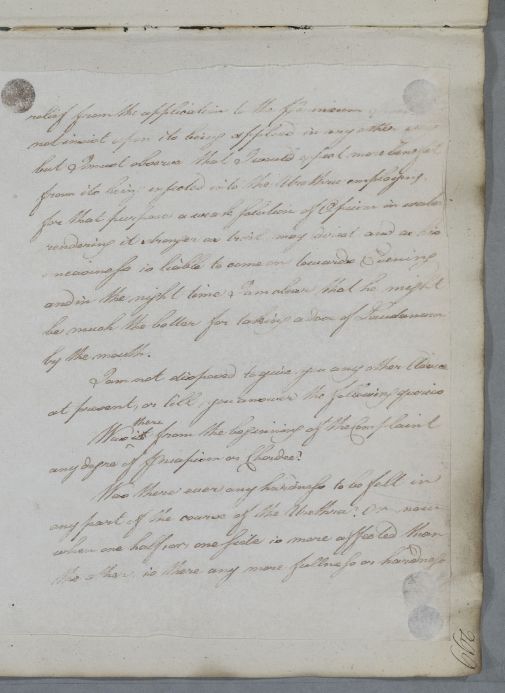 relief from the application to the Perineum
not insist upon its being applied in any other way
but I must observe that I would expect more benefit
from its being injected into the Urethra employing
for that purpose a weak solution of Opium in water
rendering it stronger as trial may and as his
uneasiness is liable to come on towards Evening
and in the night time I am clear that he might
be much the better for taking a dose of Laudanum
by the mouth.
I am not disposed to give you any other Advice
at present, or till you answer the following queries
Was there from the beginning of the Complaint
any degree of or Chordee?
Was there ever any hardness to be felt in
any part of the course of the Urethra? Or now
when one half or one side is more affected than
the other is there any more fullness or hardness
299